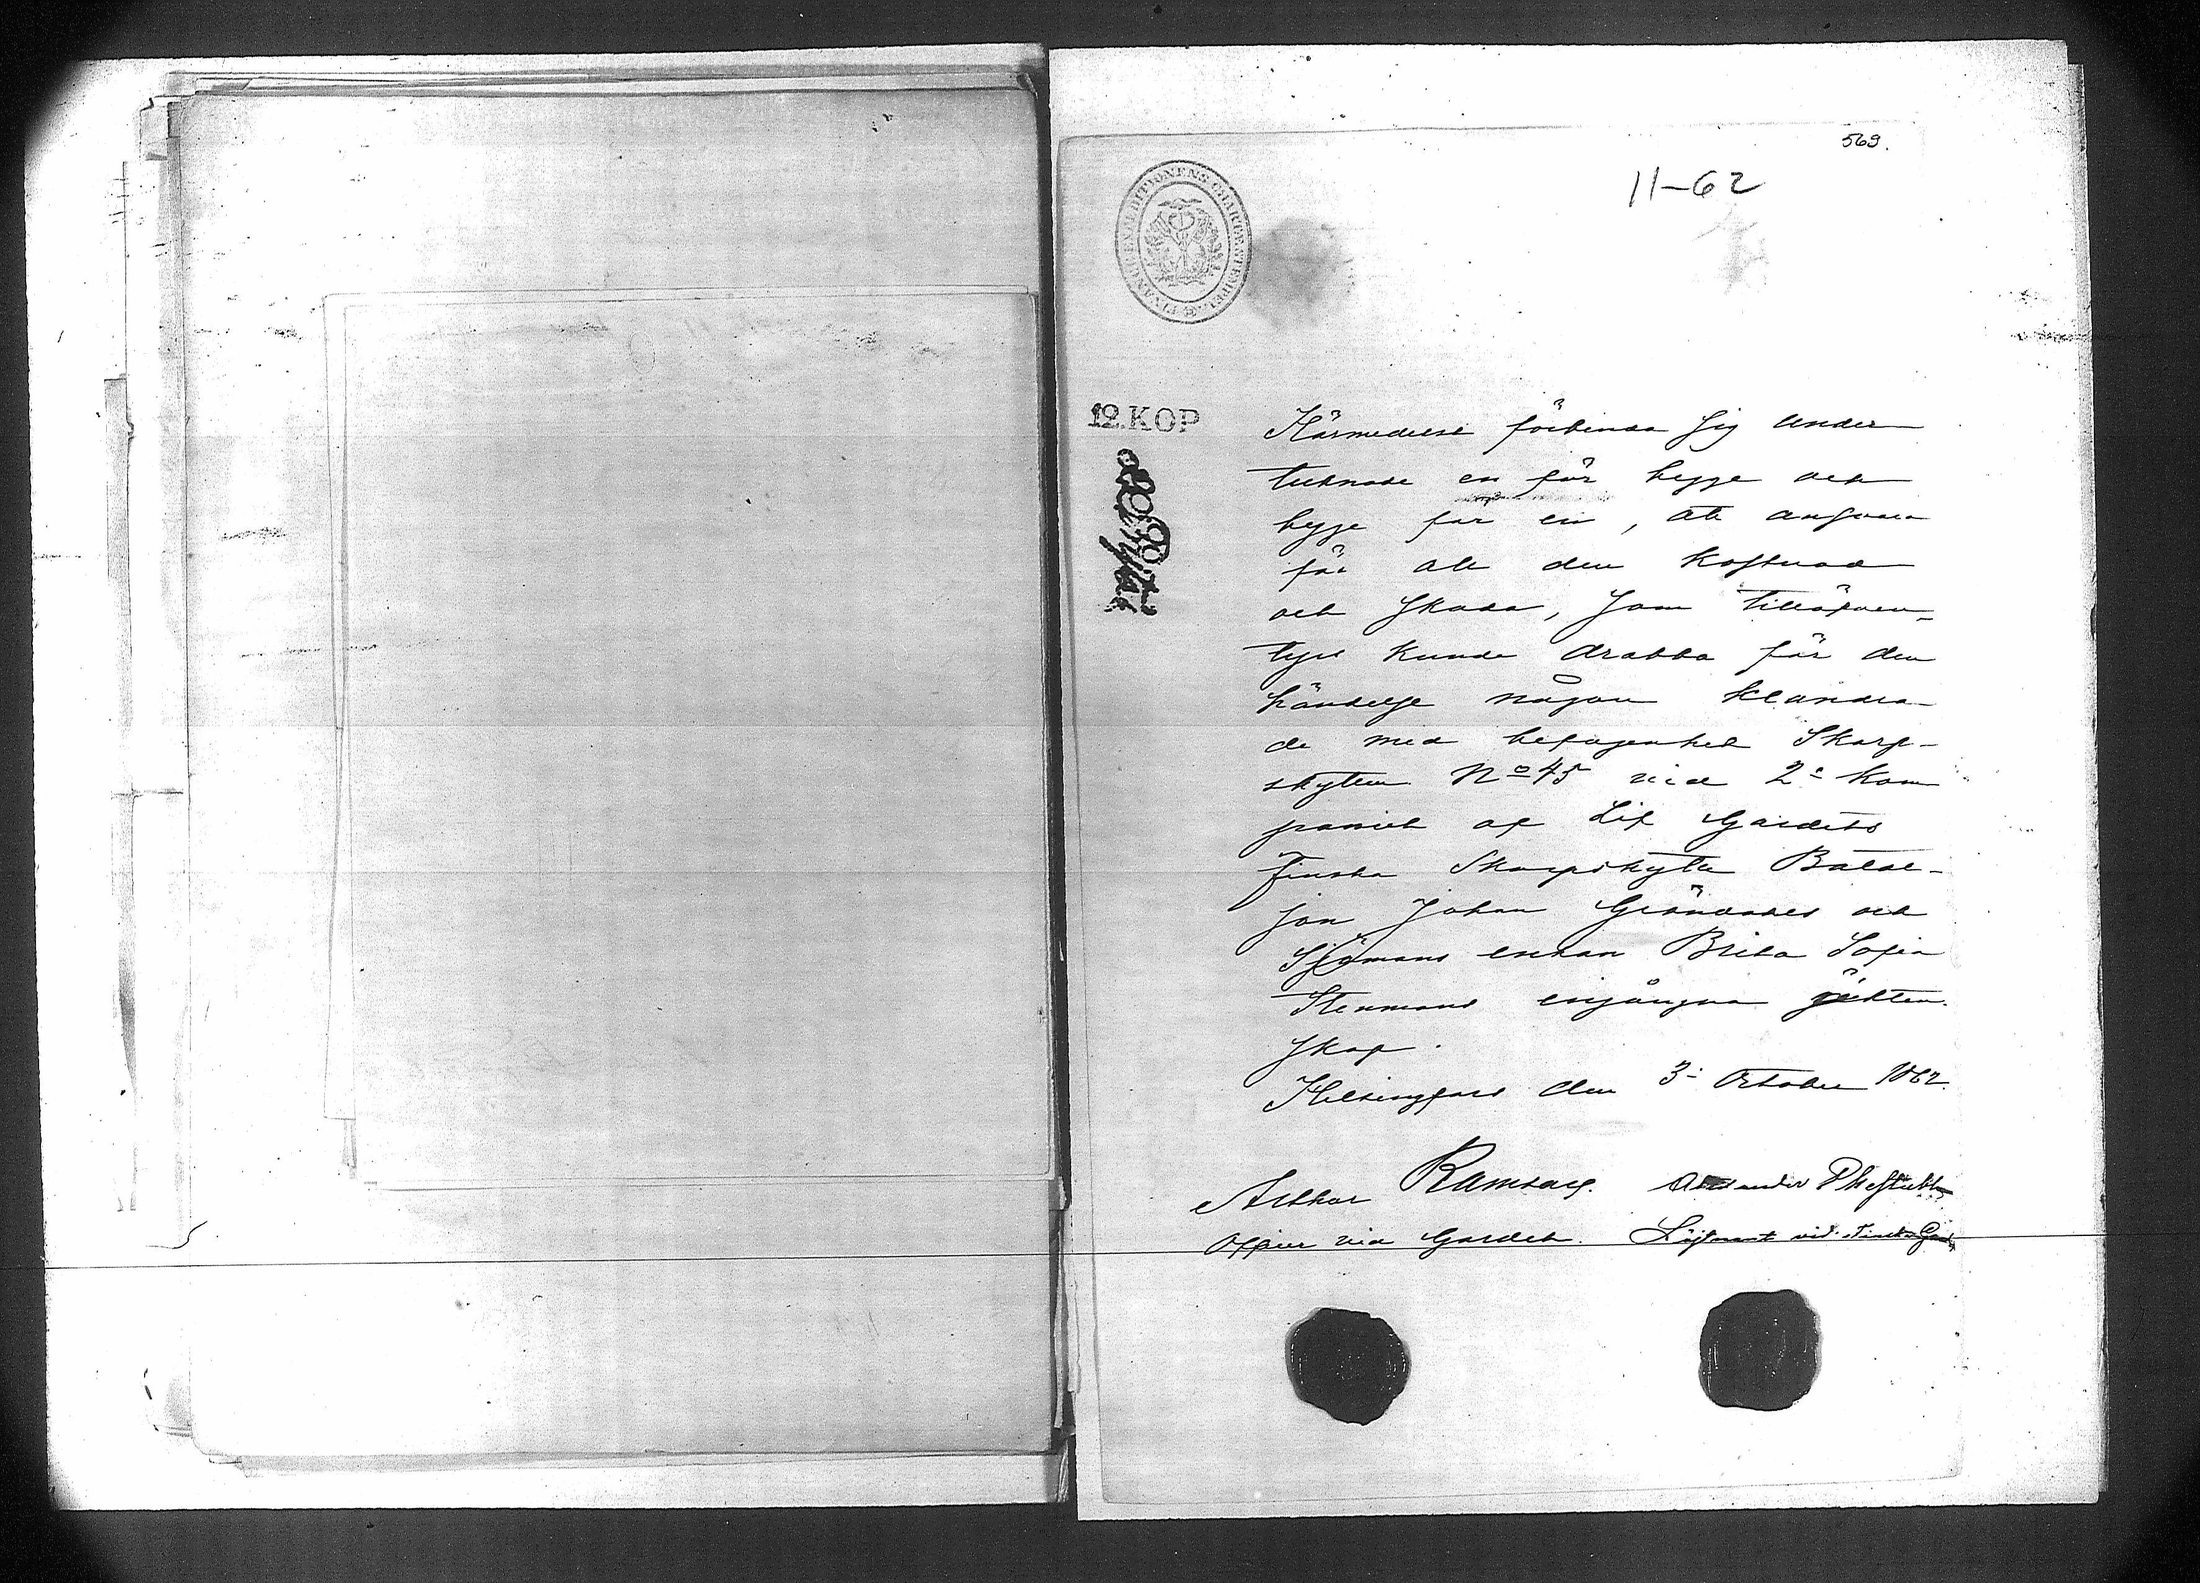 569.
11-62
FINANCE EXPEDITIONENS CHARTÆ STEMPEL
12. KOP
Härmedelst förbinda sig under
tecknade en för begge och
begge för en, att ansvara
för all den kostnad
och skada, som tilläfven-
tyrs kunde drabba för den
händelse någon klandra-
de med befogenhet Skarp-
skytten No 45 vid 2a Kom
paniet af Lif Gardets
Finska Skarpskytte Batal-
jon Johan Gröndahls och
Sjömans enkan Brita Sofia
Stenmans ingångna äkten-
skap.
Helsingfors den 3. October 1862.
Arthur Ramsay. Alexander
Officer vid Gardet. Löjtnant vid Finska Gardet